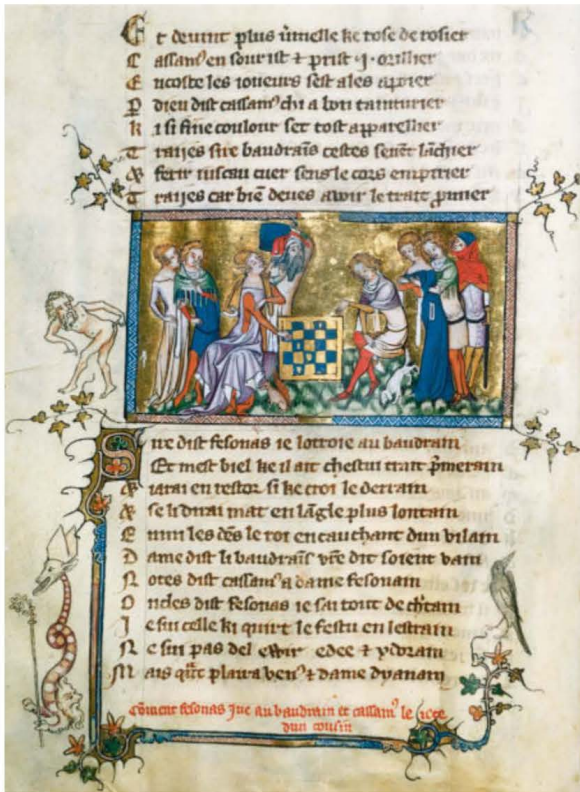 Et devint plus vmelle ke rose de rosier
Cassamꝰ en sourist ⁊ prist .j. orillier
Encoste les ioueurs sest ales apoier
P dieu dist cassamꝰ chi a bon tainturier
Ki si fine coulour set tost apparellier
Traijes sire baudrains cestes seuent lanchier
& ferir iuscau cuer sens le cors empirier
Traijes car biē deues avoir le trait pmier
Sire dist fesonas ie lottroie au baudrain
Et mest biel ke il ait chestui trait pmerain
& iarai en testor si ke croi le derrain
& se li dnrai mat en langle plus lontain
Enmi les dés le roi en cauchant dun vilain
Dame dist li baudrains vre dit soient vain
Notes dist cassamꝰ a dame fesonain
Oncles dist fesonas ie sai tout de chtain
Ie sui celle ki quirt le festu en lestrain
Ne sui pas del edee ⁊ ydorain
Mais qnt plaira venꝰ ⁊ dame dyanain
Coment fesonas jue au baudrain et cassamꝰ le
dun cousin